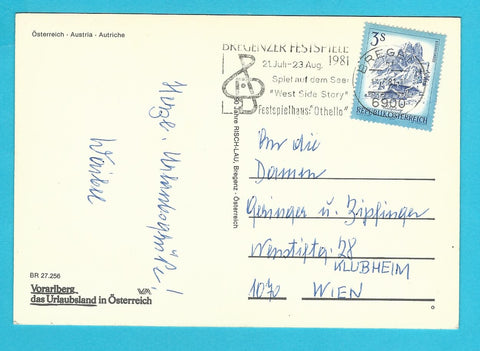 Österreich · Austria · Autriche
BREGENZER FESTSPIELE
1981
21. Juli-23. Aug.
Spiel auf dem See:
"West Side Story"
Festspielhaus: "Othello"
3 S
REPUBLIK ÖSTERREICH
BREGENZ
6900
Herzl. Urlaubsgrüße!
Jahre RISCH-LAU, Bregenz · Österreich
An die
Damen
Geringer u. Zipfinger
28
KLUBHEIM
1070 WIEN
BR 27.256
Vorarlberg
das Urlaubsland in Österreich